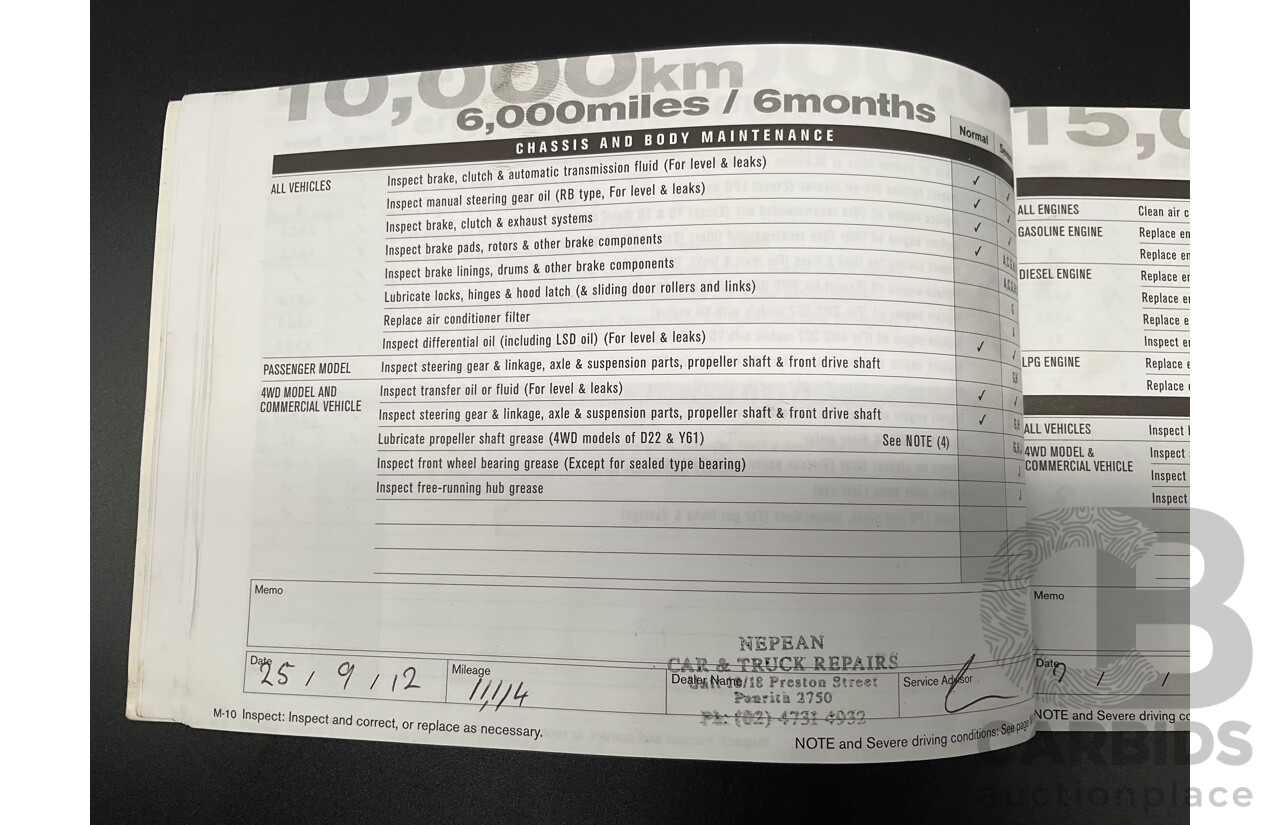 10,000km
6,000miles / 6months
CHASSIS AND BODY MAINTENANCE
Normal
ALL VEHICLES
Inspect brake, clutch & automatic transmission fluid (For level & leaks) ✓
Inspect manual steering gear oil (RB type, For level & leaks) ✓
Inspect brake, clutch & exhaust systems ✓
Inspect brake pads, rotors & other brake components ✓
Inspect brake linings, drums & other brake components
Lubricate locks, hinges & hood latch (& sliding door rollers and links)
Replace air conditioner filter
Inspect differential oil (including LSD oil) (For level & leaks) ✓
PASSENGER MODEL
Inspect steering gear & linkage, axle & suspension parts, propeller shaft & front drive shaft
4WD MODEL AND
COMMERCIAL VEHICLE
Inspect transfer oil or fluid (For level & leaks) ✓
Inspect steering gear & linkage, axle & suspension parts, propeller shaft & front drive shaft ✓
Lubricate propeller shaft grease (4WD models of D22 & Y61) See NOTE (4)
Inspect front wheel bearing grease (Except for sealed type bearing)
Inspect free-running hub grease
Memo
Date
25 / 9 / 12
Mileage
NEPEAN
CAR & TRUCK REPAIRS
Dealer Name
/18 Preston Street
Penrith 2750
Ph: (02) 4731 4932
Service Advisor
M-10 Inspect: Inspect and correct, or replace as necessary.
NOTE and Severe driving conditions: See page
15,0
ALL ENGINES
Clean air c
GASOLINE ENGINE
Replace en
Replace en
DIESEL ENGINE
Replace er
Replace er
Replace e
Inspect er
LPG ENGINE
Replace e
Replace
ALL VEHICLES
Inspect
4WD MODEL &
COMMERCIAL VEHICLE
Inspect
Inspect
Inspect
Memo
Date
NOTE and Severe driving co
CARBIDS
auctionplace